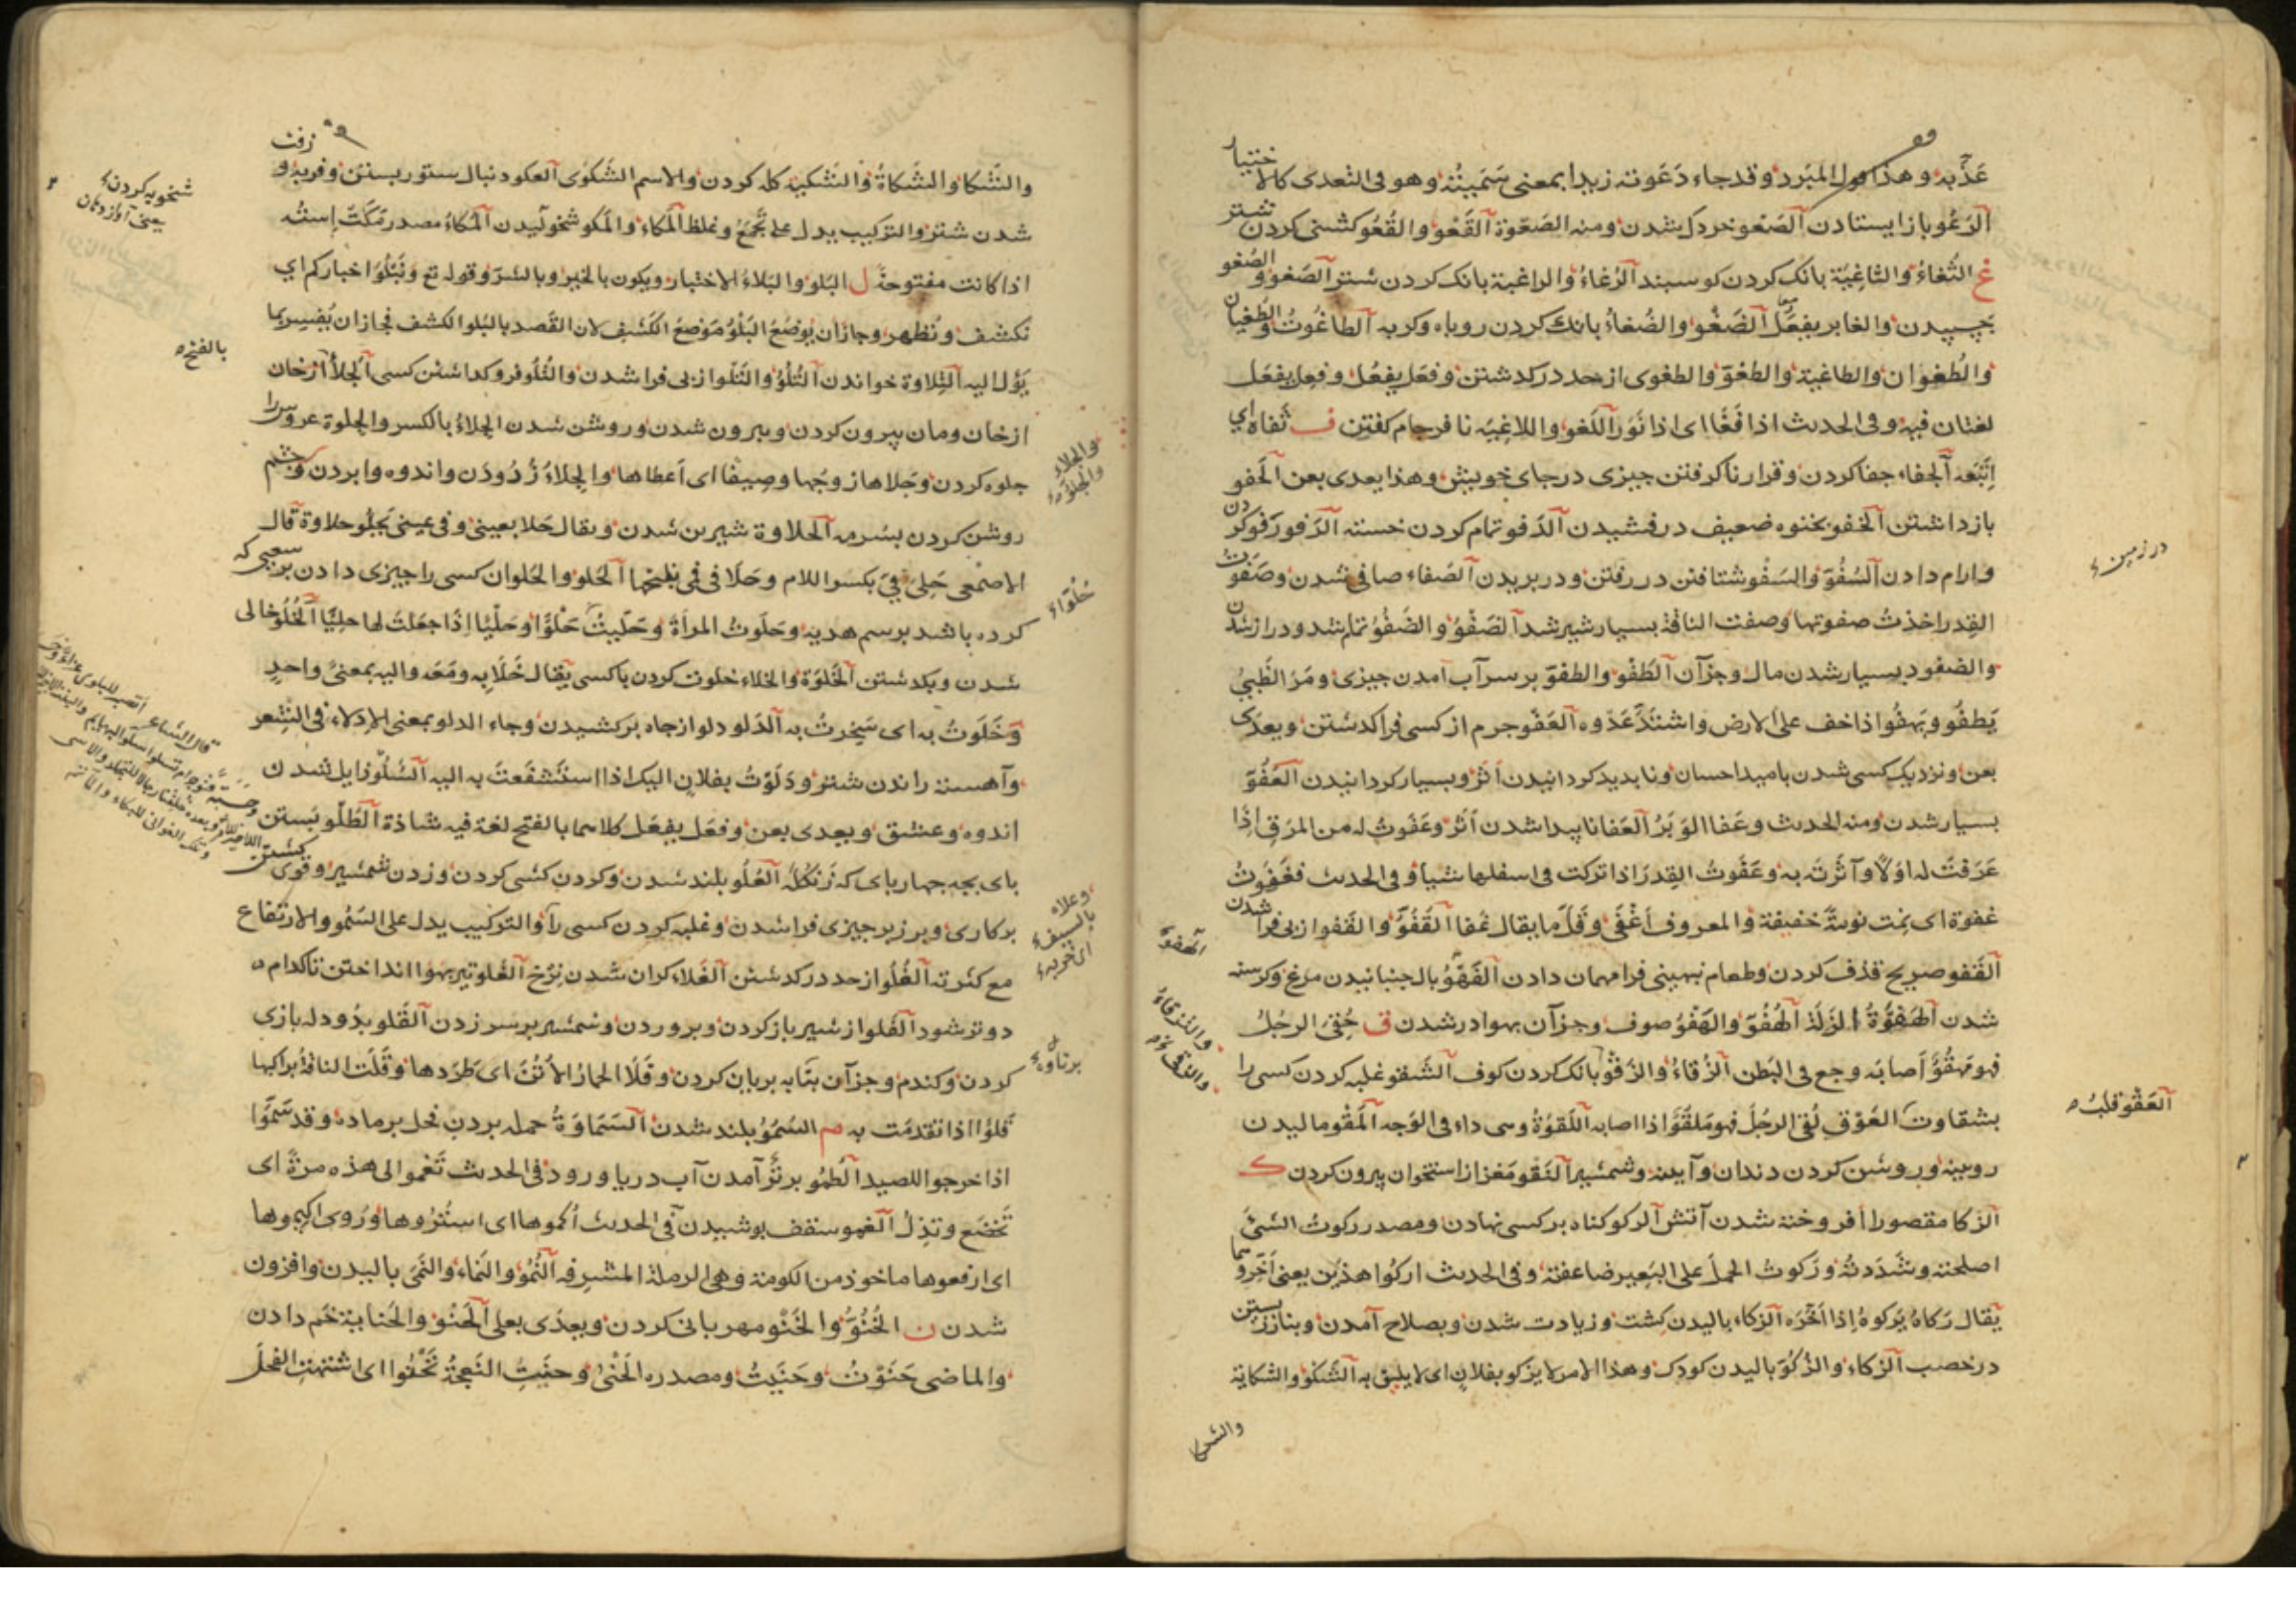 عدّ به وهذا قول المبرد وقد جاء دَعَوته زيدا بمعنى سَمَيتُه وهو فى التعدى كالاختيار
الرَعُو باز ايستادن الصَعْو خرد كل شدن ومنه الصَعْوة القَعْو والقُعُو كشنى كردن شتر
غ الثُغاءُ والثاغِيَة بانك كردن كوسبند الرُغاءُ والراغية بانك كردن شتر الصَغو والصُغو
بچسپيدن والغابر يفعَل الضَغْو والضُغاءُ بانك كردن روباه وكربه الطاغُوتُ والطُغيان
والطُغوان والطاغية والطغوّ والطغوى از حد دركدشتن وفعَل يفعُل وفعِل يفعَل
لغتان فيه وفى الحديث اذا فَغَا اى اذا نَوَّر اللَغو واللاغِيَة نا فرجام كفتن ف ثَفاه اي
اِتَّبَعَه الجفاء جفا كردن وقرار نا كرفتن جيزى در جاى خويش وهذا يعدى بعن الحَفو
باز داشتن الخفو بخنوه ضعيف درفشيدن الذَفو تمام كردن خسته الرَفو رَفو كردن
وارام دادن السُفُوّ والسَفْو شتافتن در رفتن ودر بريدن الصَفاء صافى شدن وصَفَوت
القِدر اخذتُ صفوتها وصفت الناقة بسيار شير شد الضَفْوُ والضُفُوّ تمام شد ودراز شدن
والضفود بسيار شدن مال وجز آن الطَفْو والطفوّ بر سر آب آمدن جيزى ومَرّ الظَبىُ
يَطفُو ويَهفُو اذا خف على الارض واشتدّ عَدْوه العَفو جرم از كسى فرا كدشتن ويعدّى
بعن ونزديك كسى شدن باميد احسان ونا بديد كردانيدن اَثَر وبسيار كردانيدن العَفُوّ
بسيار شدن ومنه الحديث وعَفا الوَبَرُ العَفا نا پيدا شدن اَثَر وعَفَوتُ له من المرَق اِذا
غَرَفتَ له اوَلًا وآثَرتَه به وعَفَوتُ القِدرَ اذا تركت فى اسفلها شيأ وفى الحديث فغَفَوتُ
غفوة اى نمت نومةً خفيفة والمعروف أغْفَى وقَلّ ما يقال غَفا القُفُوّ والقَفو از بى فرا شدن
القَفو صريح قذف كردن وطعام نهينى فرا مهمان دادن
شدن الهَفْوَةُ الزَلّة الهُفُوّ والهَفْوُ صوف وجز آن بهوا در شدن ق حُقِىَ الرجُلُ
فهو مَحقُوّ اَصابَه وجع فى البَطن الزُقاءُ والزَقْو بانك كردن كوف الشَقو غلبه كردن كسى را
بشقاوت العَوْق لُقِىَ الرجُلُ فهو مَلقُوّ اذا اصابه اللَقوَةُ وسى داء فى الوَجه المَقْو ماليدن
رويينه وروشن كردن دندان وآينه وشمشير النَقو مغز از استخوان بيرون كردن ك
الزكا مقصورا افروخته شدن آتش الركو كناه بر كسى نهادن ومصدر ركوتُ الشئَ
اصلحته وشَدَدتُه وركوتُ الحِملَ على البَعير ضاعفته وفى الحديث اركُوا هذَين يعنى اَخِّروهما
يُقال رَكاهُ يَركوهُ اِذا اَخَّرَه الزكاء باليدن كِشت وزيادت شدن وبصلاح آمدن وبناز زيستن
در خصب الزكاء والزُكُوّ باليدن كودك وهذا الامر لا يزكو بفلان اى لا يليق به الشَكو والشكاية
درزمين
العَقْو قلبُه
الهفوة
والزقاءُ
والشكا
والشَكا والشَكاةُ والشَكيّة كله كردن والاسم الشَكوَى العكو دنبال ستور بستن وفربه وزفت
شدن شتر والتركيب يدل على تَجَمُّع وغلظ المُكاء والمَكو شخوليدن المُكاءُ مصدر مَكَتْ اِستُه
اذا كانت مفتوحةً ل البَلو والبَلاءُ الاختبار ويكون بالخير وبالشرّ وقوله تع ونَبلُوَا اخباركم اي
نكشف ونُظهر وجاز ان يُوضَعُ البَلْوُ مَوْضعَ الكَشف لان القَصد بالبَلو الكشف فجاز ان يُفسر بما
يَؤُل اليه التِلاوة خواندن التُلُوّ والتَلو از بى فرا شدن والتُلُوّ فرو كداشتن كسى الجَلاءُ از خان
از خان ومان بيرون كردن وبيرون شدن وروشن شدن الجلاءُ بالكسر والجلوة عروس را
جلوه كردن وجَلاها زوجُها وصيفًا اى اَعطاها والجِلاءُ زُدُودَن واندوه وا بردن وچشم
روشن كردن بسُرمه الحلاوة شيرين شدن ويقال حَلا بعينى وفى عينى يَحلُو حلاوة قال
الاصمعى حَلِىَ فِىَ بكسر اللام وحَلَا فى فى بفتحها الحَلو والحُلوان كسى را جيزى دادن بر سعيى كه
كرده باشد برسم هديه وحَلَوتُ المرأةَ وحَلَيتُ حَلْوًا وحَلْيًا اِذا جعَلتَ لها حليًا الخُلُوّ خالى
شدن وبكدشتن الخَلوَة والخلاء خلوت كردن با كسى يُقال خَلَا به ومَعَه واليه بمعنىً واحدٍ
وخَلَوتُ به اى سَخِرتُ به الدَلو دلو از جاه بركشيدن وجاء الدلو بمعنى الاِدلاء فى الشعر
وآهسته راندن شتر ودَلَوْتُ بفلان اليك اذا استَشفَعتَ به اليه السُلُوّ زايل شدن
اندوه وعشق ويعدى بعن وفعَل يفعَل كلاهما بالفتح لغة فيه شاذة الطَلو بَستن
باى بجه جهار باى كه العُلُو بلند شدن وكردن كشى كردن وزدن شمشير وقوى كشتن
بر كارى وبر زبر جيزى فرا شدن وغلبه كردن كسى را والتركيب يدل على السُمُو والارتفاع
مع كثرته الغُلُو از حد دركدشتن الغَلاء كران شدن نِرخ الغَلو تير بهوا انداختن تا كدام
دوتر شود الفَلو از شير باز كردن وبروردن وشمشير بر سر زدن القَلو بدُودله بازى
كردن وكندم وجز آن بتابه بريان كردن وقَلَا الحِمارُ الاُتُنَ اى طَرَدها وقَلَت الناقةُ براكبها
قَلوًا اذا تقدمَت به م السُمُوُّ بلند شدن السَمَاوَةُ حمله بردن فحل بر ماده وقد سَمَوْا
اذا خرجوا للصيد الطُمُو برتَر آمدن آب دريا ورود فى الحديث تَعْمو الى هذه مرّةً اى
تَخضَع وتَذِلّ الغَمو سقف بوشيدن فى الحديث اُكموها اى استُرُوها ورُوى اكيموها
اى ارفعوها ماخوذ من الكومة وهى الرملة المشرِفه النُمُوّ والنَماء والنَمى باليدن وافزون
شدن ن الحُنُوّ والحَنْو مهربانى كردن ويعدّى بعلى الحَنو والحَناية خم دادن
والماضى حَنَوْتُ وحَنَيتُ ومصدره الحَنْىُ وحنَت النَعجَةُ تَحْنُوا اى اشتهت الفحلَ
شخويه كردن
يعنى آواز دهان
بالفتح
والجلاء
والجلوة
حُلوَاء
وعلاه
بالسيف
اى ضربه
برتاوه